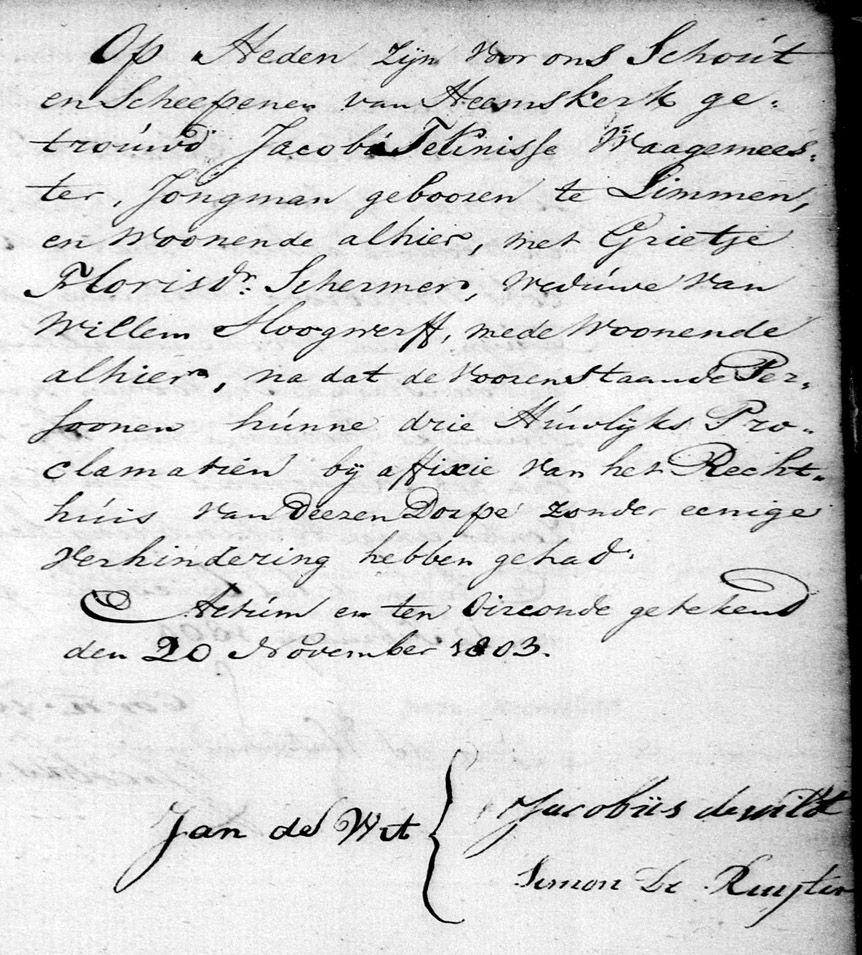 Op Heden zijn voor ons Schout
en Scheepenen van Heemskerk ge-
trouwd Jacob Teunisse Waagemees-
ter, Jongman gebooren te Limmen,
en Woonende alhier, met Grietje
Floris dr. Schermer, Weduwe van
Willem Hoogwerff, mede Woonende
alhier, na dat de voorenstaande Per-
soonen hunne drie Huwlyks Pro-
clamatien by affixie van het Recht-
huis van deezen Dorpe zonder eenige
verhindering hebben gehad.
Actum en ten Oirconde getekend
den 20 November 1803.
Jan de Wit
Jacobus de wildt
Simon De Ruyter